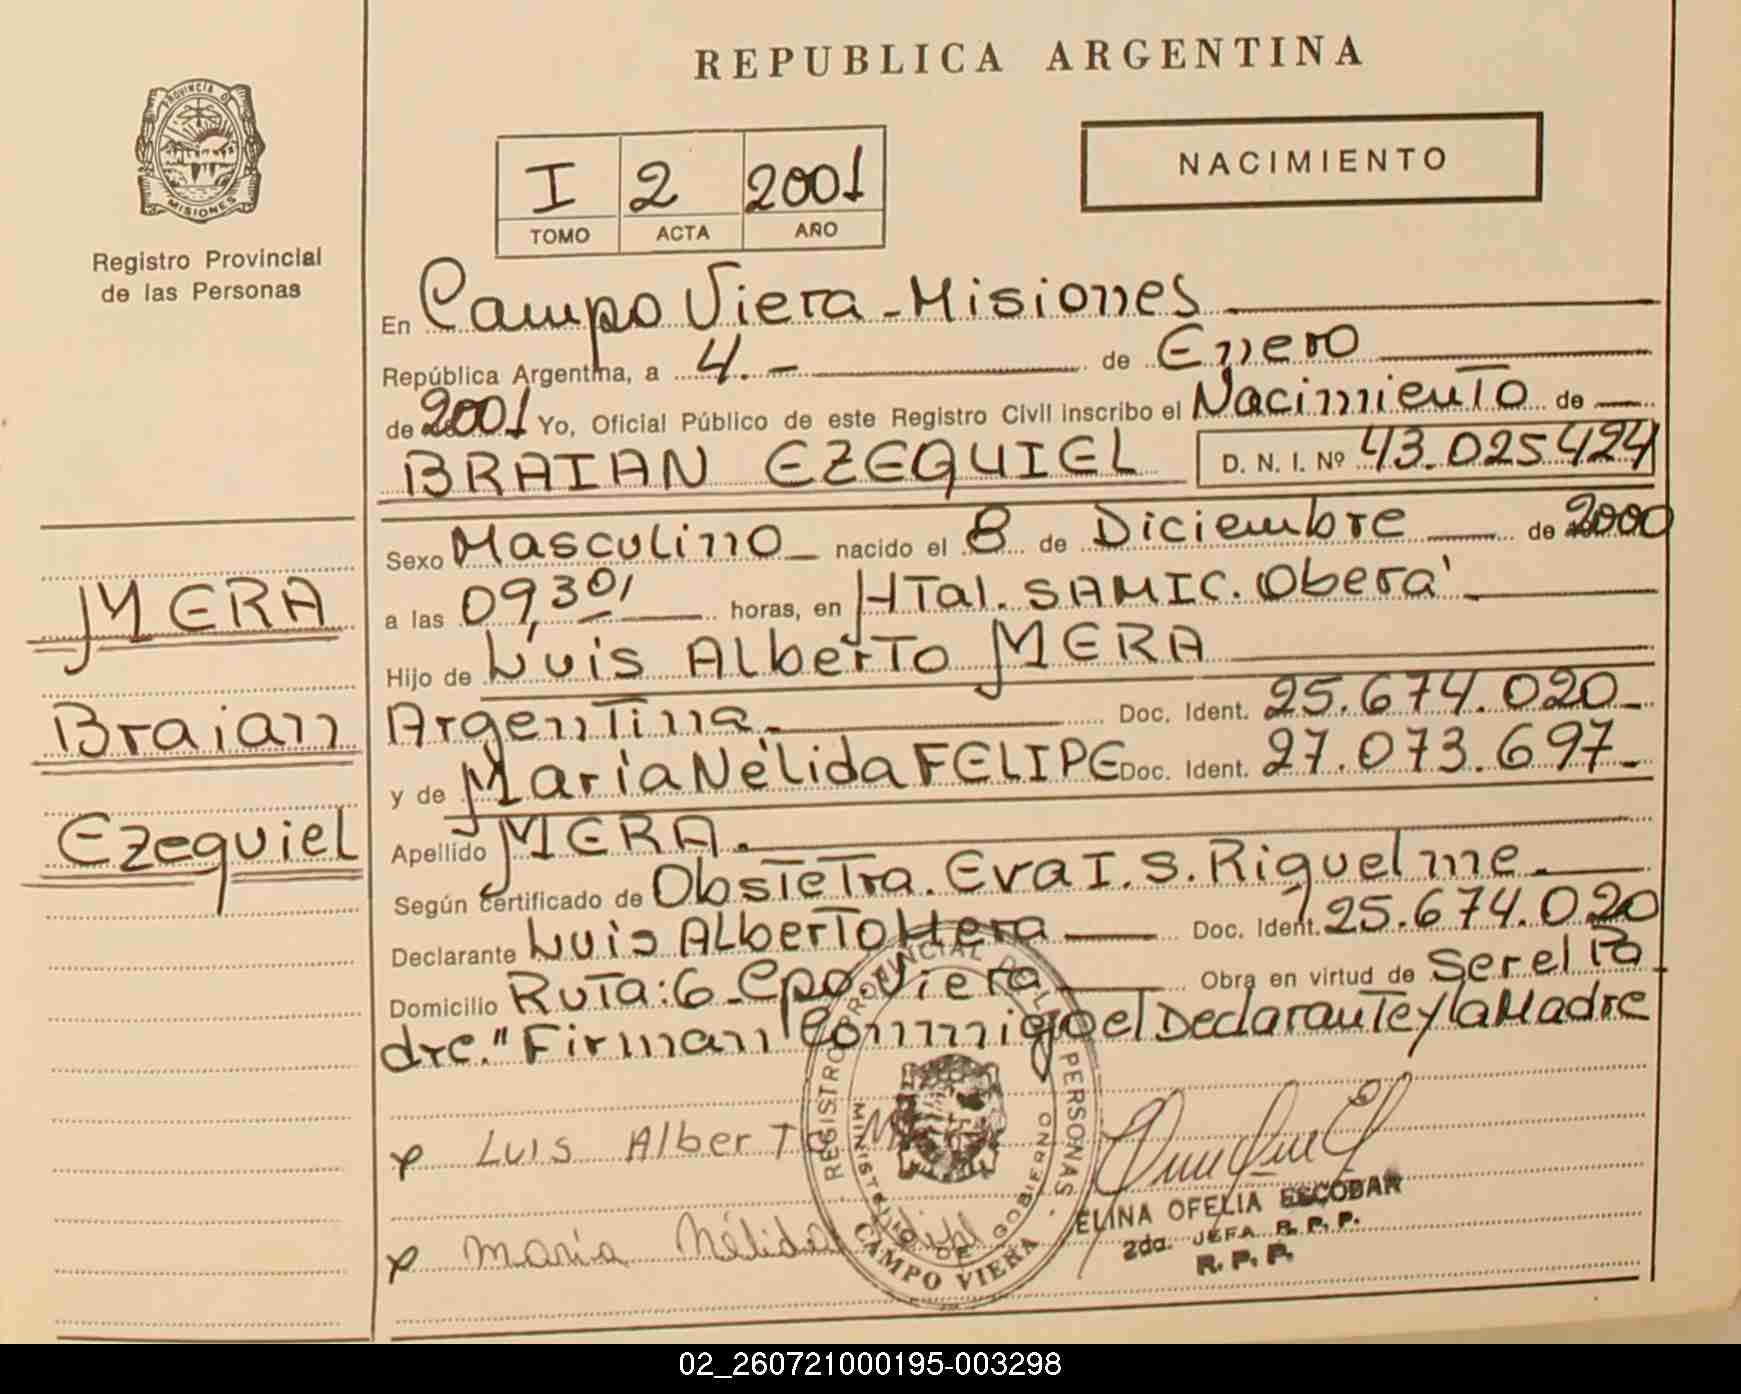 REPUBLICA ARGENTINA
PROVINCIA D
MISIONES
Registro Provincial
de las Personas
I 2 2001
TOMO ACTA AÑO
NACIMIENTO
En Campo Viera - Misiones
República Argentina, a 4.- de Enero
de 2001 Yo, Oficial Público de este Registro Civil inscribo el Nacimiento de
BRAIAN EZEQUIEL D. N. I. Nº 43.025424
Sexo Masculino nacido el 8 de Diciembre de 2000
a las 09,30, horas, en HTal. SAMIC. Oberá.
Hijo de Luis Alberto MERA
Argentina. Doc. Ident. 25.674.020
y de María Nélida FELIPE Doc. Ident. 27.073.697
Apellido MERA.
Según certificado de Obstetra. Eva I. S. Riquelme.
Declarante Luis Alberto Mera Doc. Ident. 25.674.020
Domicilio Ruta: 6 - Cpo. Viera Obra en virtud de ser el Pa
dre." Firman Conmigo el Declarante y la Madre
MERA
Braian
Ezequiel
x Luis Alberto
x María Nélida
REGISTRO PROVINCIAL DE LAS PERSONAS
MINISTERIO DE GOBIERNO
CAMPO VIERA
ELINA OFELIA ESCOBAR
2da. JEFA R. P. P.
R. P. P.
02_260721000195-003298